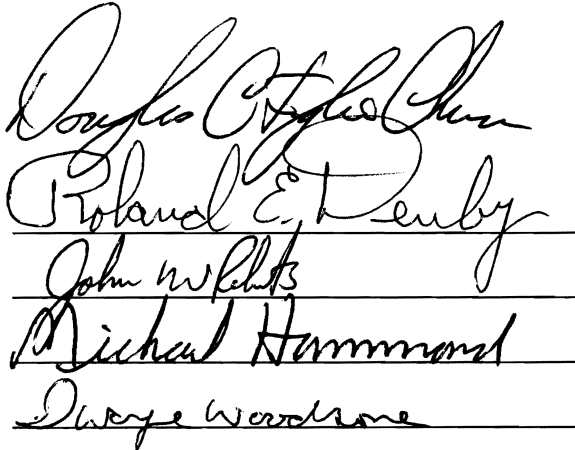 Douglas C
Roland E. Denby
John W Roberts
Michael Hammond
Dwayne Woodsone